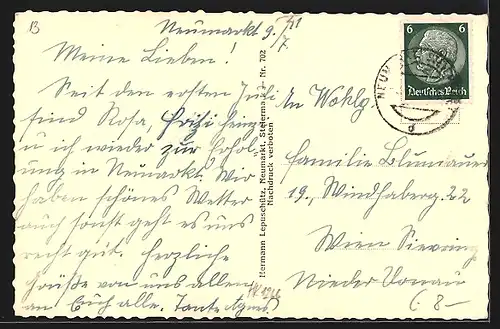 B
Neumarkt 9./7. 41
Meine Lieben!
Seit den ersten Juli
sind Rosa, Fritzi
u ich wieder zur Erhol
ung in Neumarkt. Wir
haben schönes Wetter
auch sonst geht es uns
recht gut. Herzliche
Grüße von uns allen
an Euch alle. Tante Agnes
Hermann Lepuschütz, Neumarkt, Steiermark - Nr. 702
Nachdruck verboten
6 6
Deutsches Reich
NEUM
d
An Wohlg
Familie Blumauer
19., Windhaberg. 22
Wien Sievring
Nieder Donau
8-